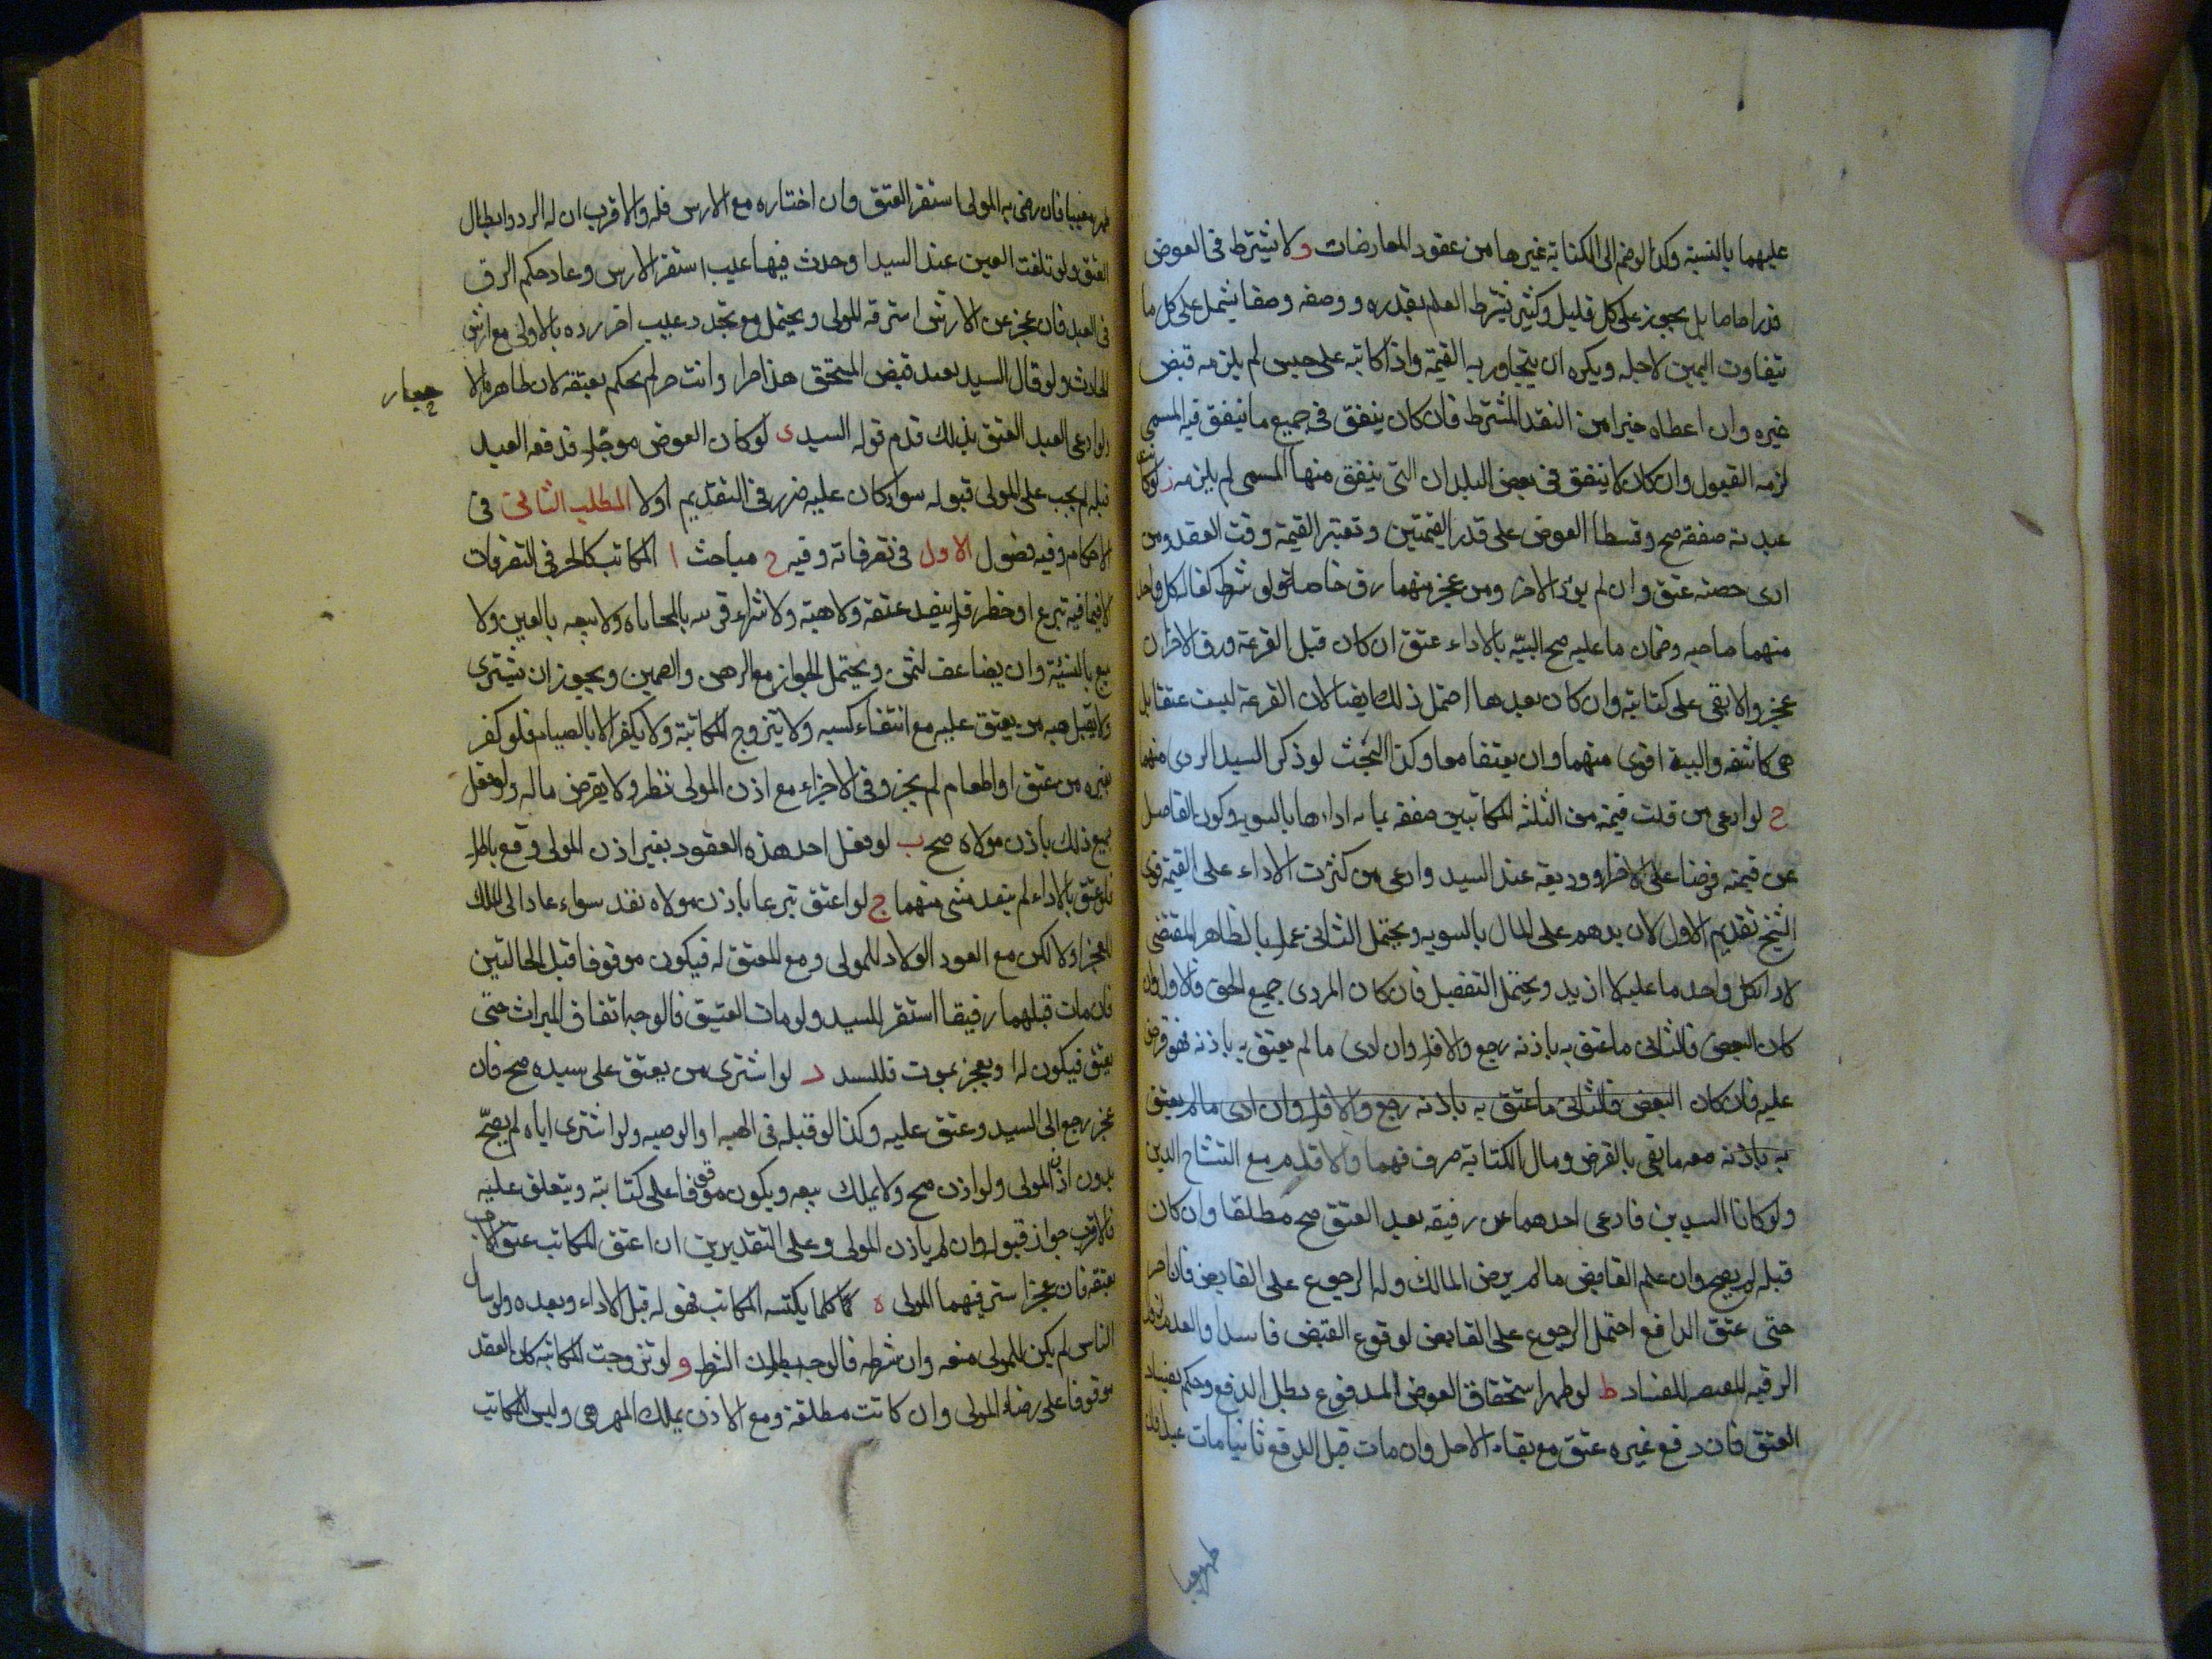 عليهما بالنسبة وكذا لو ضم الى الكتابة غيرها من عقود المعاوضات و لا يشترط فى العوض
قدرا خاصا بل يجوز على كل قليل وكثير يشترط العلم بقدره و وصفه وصفا يشتمل على كل ما
يتفاوت الثمن لاجله ويكره ان يتجاوز به القيمة واذا كاتبه على جنس لم يلزمه قبض
غيره وان اعطاه خيرا من النقد المشترط فان كان ينفق فى جميع ما ينفق فيه المسمى
لزمه القبول وان كان لا ينفق فى بعض البلدان التى ينفق منها المسمى لم يلزمه ز
عبديه صفقة صح وقسط العوض على قدر القيمتين وتعتبر القيمة وقت العقد ومن
ادى حصته عتق وان لم يؤد الاخر ومن عجز منهما رق خاصة ولو شرط كفالة كل واحد
منهما صاحبه وضمان ما عليه صح البيّه بالاداء عتق ان كان قبل القرعة ورق الاخران
عجز والا بقى على كتابته وان كان بعدها احتمل ذلك ايضا لان القرعة ليست عتقا بل
هى كاشفه والبينة اقوى منهما وان يعتقا معا وكذا البحث لو ذكر السيد المؤدى منهما
ح لو ادعى من قلت قيمته من الثلثه المكاتبين صفقه بمائه اداءها بالسويه وكون الفاضل
عن قيمته قرضا على الاخر او وديعة عند السيد وادعى من كثرت الاداء على القيمة قوى
الشيخ تقديم الاول لان يدهم على المال بالسويه ويحتمل الثانى عملا بالظاهر المقتضى
لاداء كل واحد ما عليه لا ازيد ويحتمل التفصيل فان كان المؤدى جميع الحق فالاول وان
كان البعض فالثانى ما عتق به باذنه رجع والا فلا وان ادى ما لم يعتق به باذنه فهو قرض
عليه فان كان البعض فالثانى ما عتق به باذنه رجع والا فلا وان ادى ما لم يعتق
به باذنه معه ما يفى بالقرض ومال الكتابة صرف فيهما والا قدم مع التشاح الدين
ولو كانا السيدين فادعى احدهما عن رفيقه بعد العتق صح مطلقا وان كان
قبله لم يصح وان علم القابض ما لم يرض المالك وله الرجوع على القابض فان اخر
حتى عتق الدافع احتمل الرجوع على القابض لوقوع القبض فاسدا والعدم
الرقيه للفساد ط لو ظهر استحقاق العوض المدفوع بطل الدفع وحكم بفساد
العتق فان دفع غيره عتق مع بقاء الاجل وان مات قبل الدفع ثانيا مات عبدا فان
ظهر معيبا
ظهر معيبا فان رضى به المولى استقر العتق وان اختاره مع الارش فله والاقرب ان له الرد وابطال
العتق ولو تلفت العين عند السيد او حدث فيها عيب استقر الارش وعاد حكم الرق
فى العبد فان عجز عن الارش استرقه المولى ويحتمل مع تجدد عيب اخر رده بالاولى مع ارش
الحادث ولو قال السيد بعد قبض المستحق هذا حر او انت حر لم يحكم بعتقه لان ظاهره الا
خبار
ولو ادعى العبد العتق بذلك قدم قوله السيد ى لو كان العوض مؤجلا فدفعه العبد
قبله لم يجب على المولى قبوله سواء كان عليه ضرر فى التقديم اولا المطلب الثانى فى
الاحكام وفيه فصول الاول فى تصرفاته وفيه ح مباحث ا المكاتب كالحر فى التصرفات
لا فيما فيه تبرع او خطر فلا ينفذ عتقه ولا هبته ولا شراء قريبه بالمحاباه ولا بيعه بالغبن ولا
بيع بالنسيئة وان يضاعف لثمن ويحتمل الجواز مع الرهن والضمين ويجوز ان يشترى
ولا يقبل هبه من يعتق عليه مع انتفاء كسبه ولا يتزوج المكاتبة ولا يكفر الا بالصيام فلو كفر
بغيره من عتق او اطعام لم يجز وفى الاجزاء مع اذن المولى نظر ولا يقرض ماله ولو فعل
جميع ذلك باذن مولاه صح ب لو فعل احد هذه العقود بغير اذن المولى وقع باطلا
فلو عتق بالاداء لم ينفذ شى منهما ج لو اعتق تبرعا باذن مولاه نفذ سواء عاد الى الملك
للعجز اولا لكن مع العود الولاء للمولى ومع العتق له فيكون موقوفا قبل الحالتين
فان مات قبلهما رقيقا استقر للسيد ولو مات العتيق فالوجه اتفاق الميراث حتى
يعتق فيكون له او يعجز بموت فللسيد د لو اشترى من يعتق على سيده صح فان
عجز رجع الى السيد وعتق عليه وكذا لو قبله فى الهبه او الوصيه ولو اشترى اباه لم يصحّ
بدون اذن المولى ولو اذن صح ولا يملك بيعه ويكون موقوفا على كتابته ويتعلق عليه
فالاقرب جواز قبوله وان لم ياذن المولى وعلى التقديرين ان اعتق المكاتب عتق الاب
بعتقه فان عجز استرقهما المولى ه كلما يكتسبه المكاتب فهو له قبل الاداء وبعده ولو سأل
الناس لم يكن للمولى منعه وان شرطه فالوجه بطلان الشرط و لو تزوجت المكاتبه كان العقد
موقوفا على رضاء المولى وان كانت مطلقة ومع الاذن يملك المهر هى وليس للمكاتب